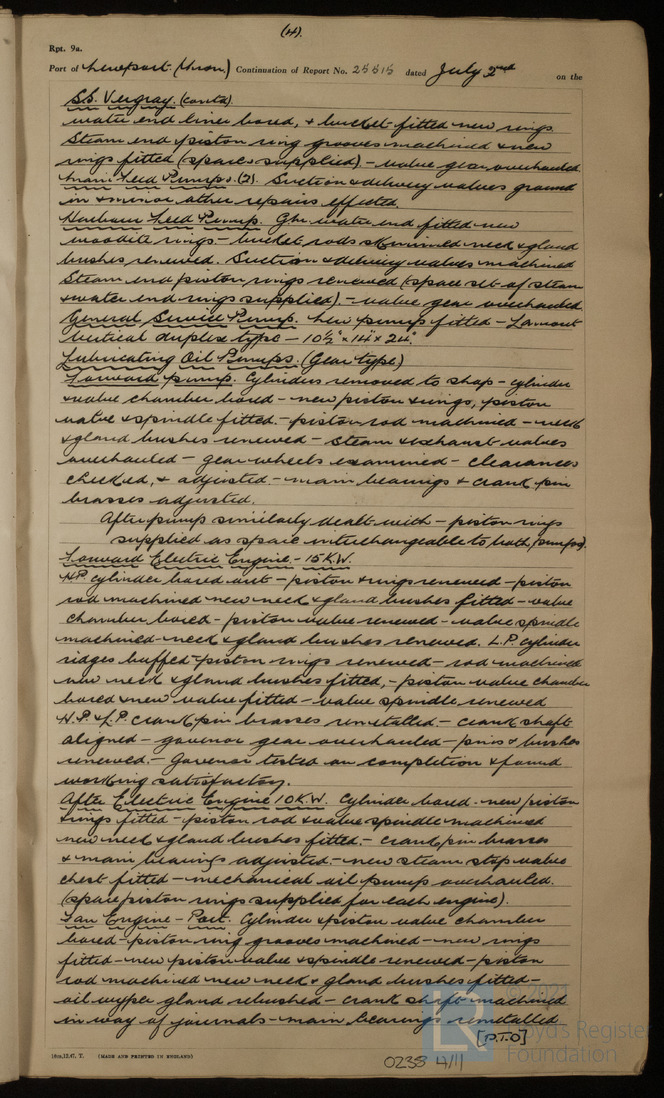 (4).
Rpt. 9a.
Port of Newport (Mon.) Continuation of Report No. 25515 dated July 2nd on the
S.S. Vergray. (contd)
water end liner bored, & bucket fitted new rings.
Steam end piston ring grooves machined & new
rings fitted (spares supplied) - valve gear overhauled.
Main Feed Pumps. (2). Suction & delivery valves ground
in & minor other repairs effected.
Harbour Feed Pump. The water end fitted new
woodite rings - bucket rods skimmed neck & gland
bushes renewed. Suction & delivery valves machined
Steam end piston rings renewed (spare set of steam
& water end rings supplied). - valve gear overhauled.
General Service Pump. New pump fitted - Lamont
vertical duplex type - 10½" x 14" x 24".
Lubricating Oil Pumps. (Gear type)
Forward pump. Cylinders removed to shop - cylinder
& valve chamber bored - new piston & rings, piston
valve & spindle fitted. - piston rod machined - neck
& gland bushes renewed - steam & exhaust valves
overhauled - gear wheels examined - clearances
checked, & adjusted. - main bearings & crank pin
brasses adjusted.
After pump similarly dealt with - piston rings
supplied as spare interchangeable to both pumps).
Forward Electric Engine. - 15 K.W.
H.P. cylinder bored out - piston & rings renewed - piston
rod machined new neck & gland bushes fitted - valve
chamber bored - piston valve renewed - valve spindle
machined - neck & gland bushes renewed. L.P. cylinder
ridges buffed - piston rings renewed - rod machined
new neck & gland bushes fitted, - piston valve chamber
bored & new valve fitted - valve spindle renewed
H.P. & L.P. crank pin brasses remetalled. - crank shaft
aligned - governor gear overhauled - pins & bushes
renewed. - Governor tested on completion & found
working satisfactory.
After Electric Engine 10 K.W. Cylinder bored. new piston
& rings fitted - piston rod & valve spindle machined
new neck & gland bushes fitted. - crank pin brasses
& main bearings adjusted. - new steam stop valve
chest fitted - mechanical oil pump overhauled.
(spare piston rings supplied for each engine).
Fan Engine - Port. Cylinder & piston valve chamber
bored - piston ring grooves machined - new rings
fitted - new piston valve & spindle renewed - piston
rod machined new neck & gland bushes fitted -
oil wyper gland rebushed - crank shaft machined
in way of journals - main bearings remetalled
[P.T.O]
10m,12,47. T. (MADE AND PRINTED IN ENGLAND)
0238 4/11
© 2021
Lloyd's Register
Foundation